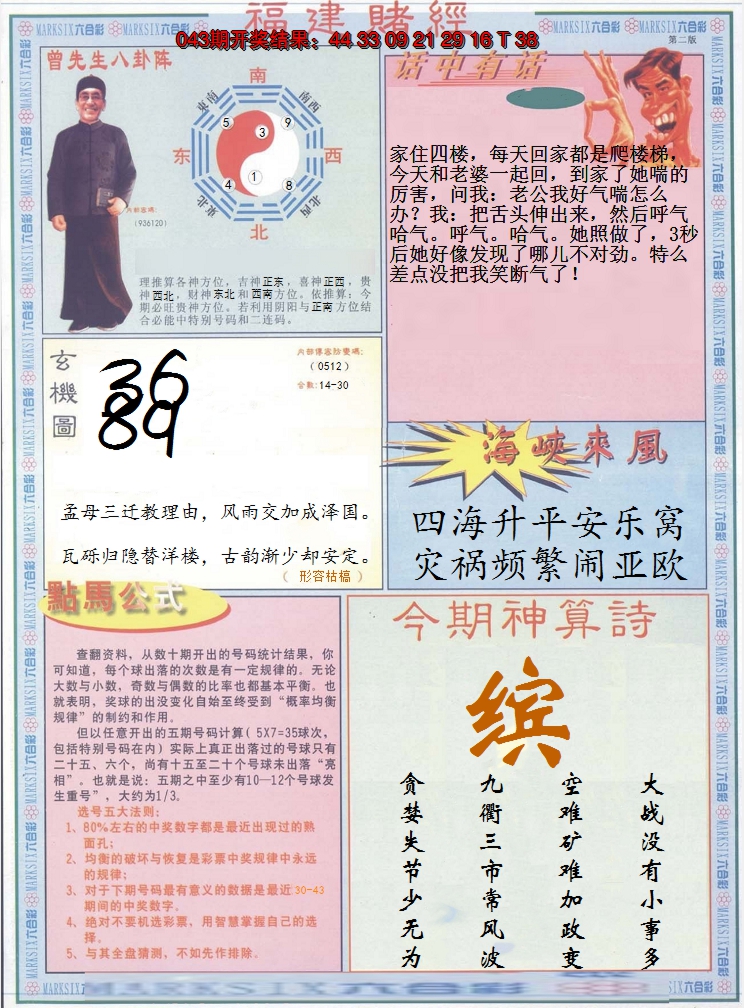 福建賭經
043期开奖结果：44 33 09 21 29 16 T 38
第二版
曾先生八卦阵
南
东南
西南
5
9
3
东
西
1
4
8
东北
西北
北
内部密碼：
(936120)
理推算各神方位，吉神正东，喜神正西，贵
神西北，财神东北和西南方位。依推算：今
期必旺贵神方位。若利用阴阳与正南方位结
合必能中特别号码和二连码。
话中有话
家住四楼，每天回家都是爬楼梯，
今天和老婆一起回，到家了她喘的
厉害，问我：老公我好气喘怎么
办？我：把舌头伸出来，然后呼气
哈气。呼气。哈气。她照做了，3秒
后她好像发现了哪儿不对劲。特么
差点没把我笑断气了！
玄機圖
36
89
内部傳密防變碼：
(0512)
合数：14-30
孟母三迁教理由，风雨交加成泽国。
瓦砾归隐替洋楼，古韵渐少却安定。
（ 形容枯槁 ）
海峽來風
四海升平安乐窝
灾祸频繁闹亚欧
點馬公式
查翻资料，从数十期开出的号码统计结果，你
可知道，每个球出落的次数是有一定规律的。无论
大数与小数，奇数与偶数的比率也都基本平衡。也
就表明，奖球的出没变化自始至终受到“概率均衡
规律”的制约和作用。
但以任意开出的五期号码计算（5X7=35球次，
包括特别号码在内）实际上真正出落过的号球只有
二十五、六个，尚有十五至二十个号球未出落“亮
相”。也就是说：五期之中至少有10—12个号球发
生重号”，大约为1/3。
选号五大法则：
1、80%左右的中奖数字都是最近出现过的熟
面孔；
2、均衡的破坏与恢复是彩票中奖规律中永远
的规律；
3、对于下期号码最有意义的数据是最近30-43
期间的中奖数字。
4、绝对不要机选彩票，用智慧掌握自己的选
择。
5、与其全盘猜测，不如先作排除。
今期神算詩
缤
大战没有小事多
空难矿难加政变
九衢三市常风波
贪婪失节少无为
MARKSIX六合彩